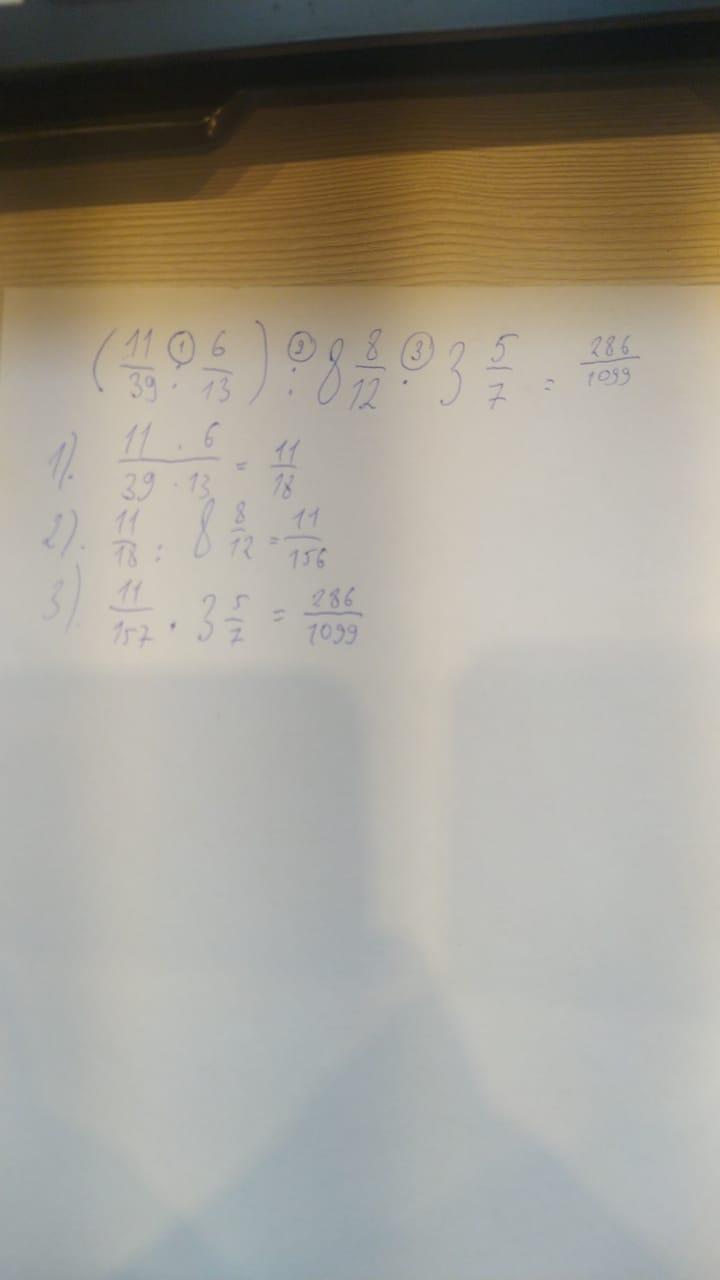 (11/39 ①: 6/13) ②: 8 8/12 ③· 3 5/7 = 286/1099
1). 11 · 6 / 39 · 13 = 11/18
2). 11/18 : 8 8/12 = 11/156
3). 11/157 · 3 5/7 = 286/1099